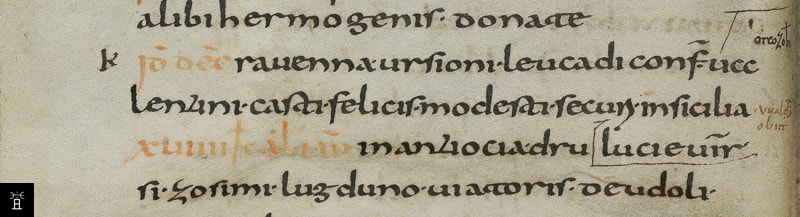 alibi hermogenis· donate
k id dec̄ ravenna ursioni· leucadi conf̄· vcc
lentini· casti· felicis· modesti· securi· in sicilia
xviiii in antiocia dru lucie vir̄
si· zosimi· lugduno· viatoris· deudoli·